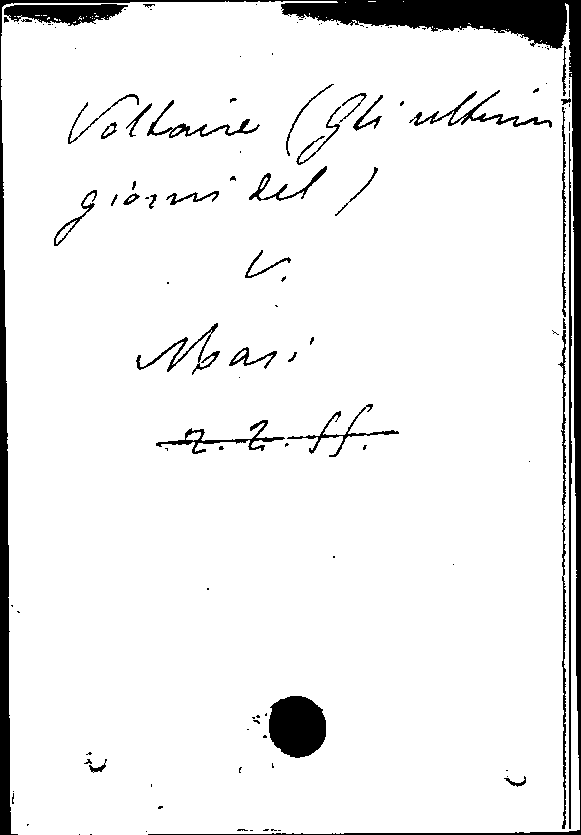 Voltaire (Gli ultimi
giorni del)
V.
Masi